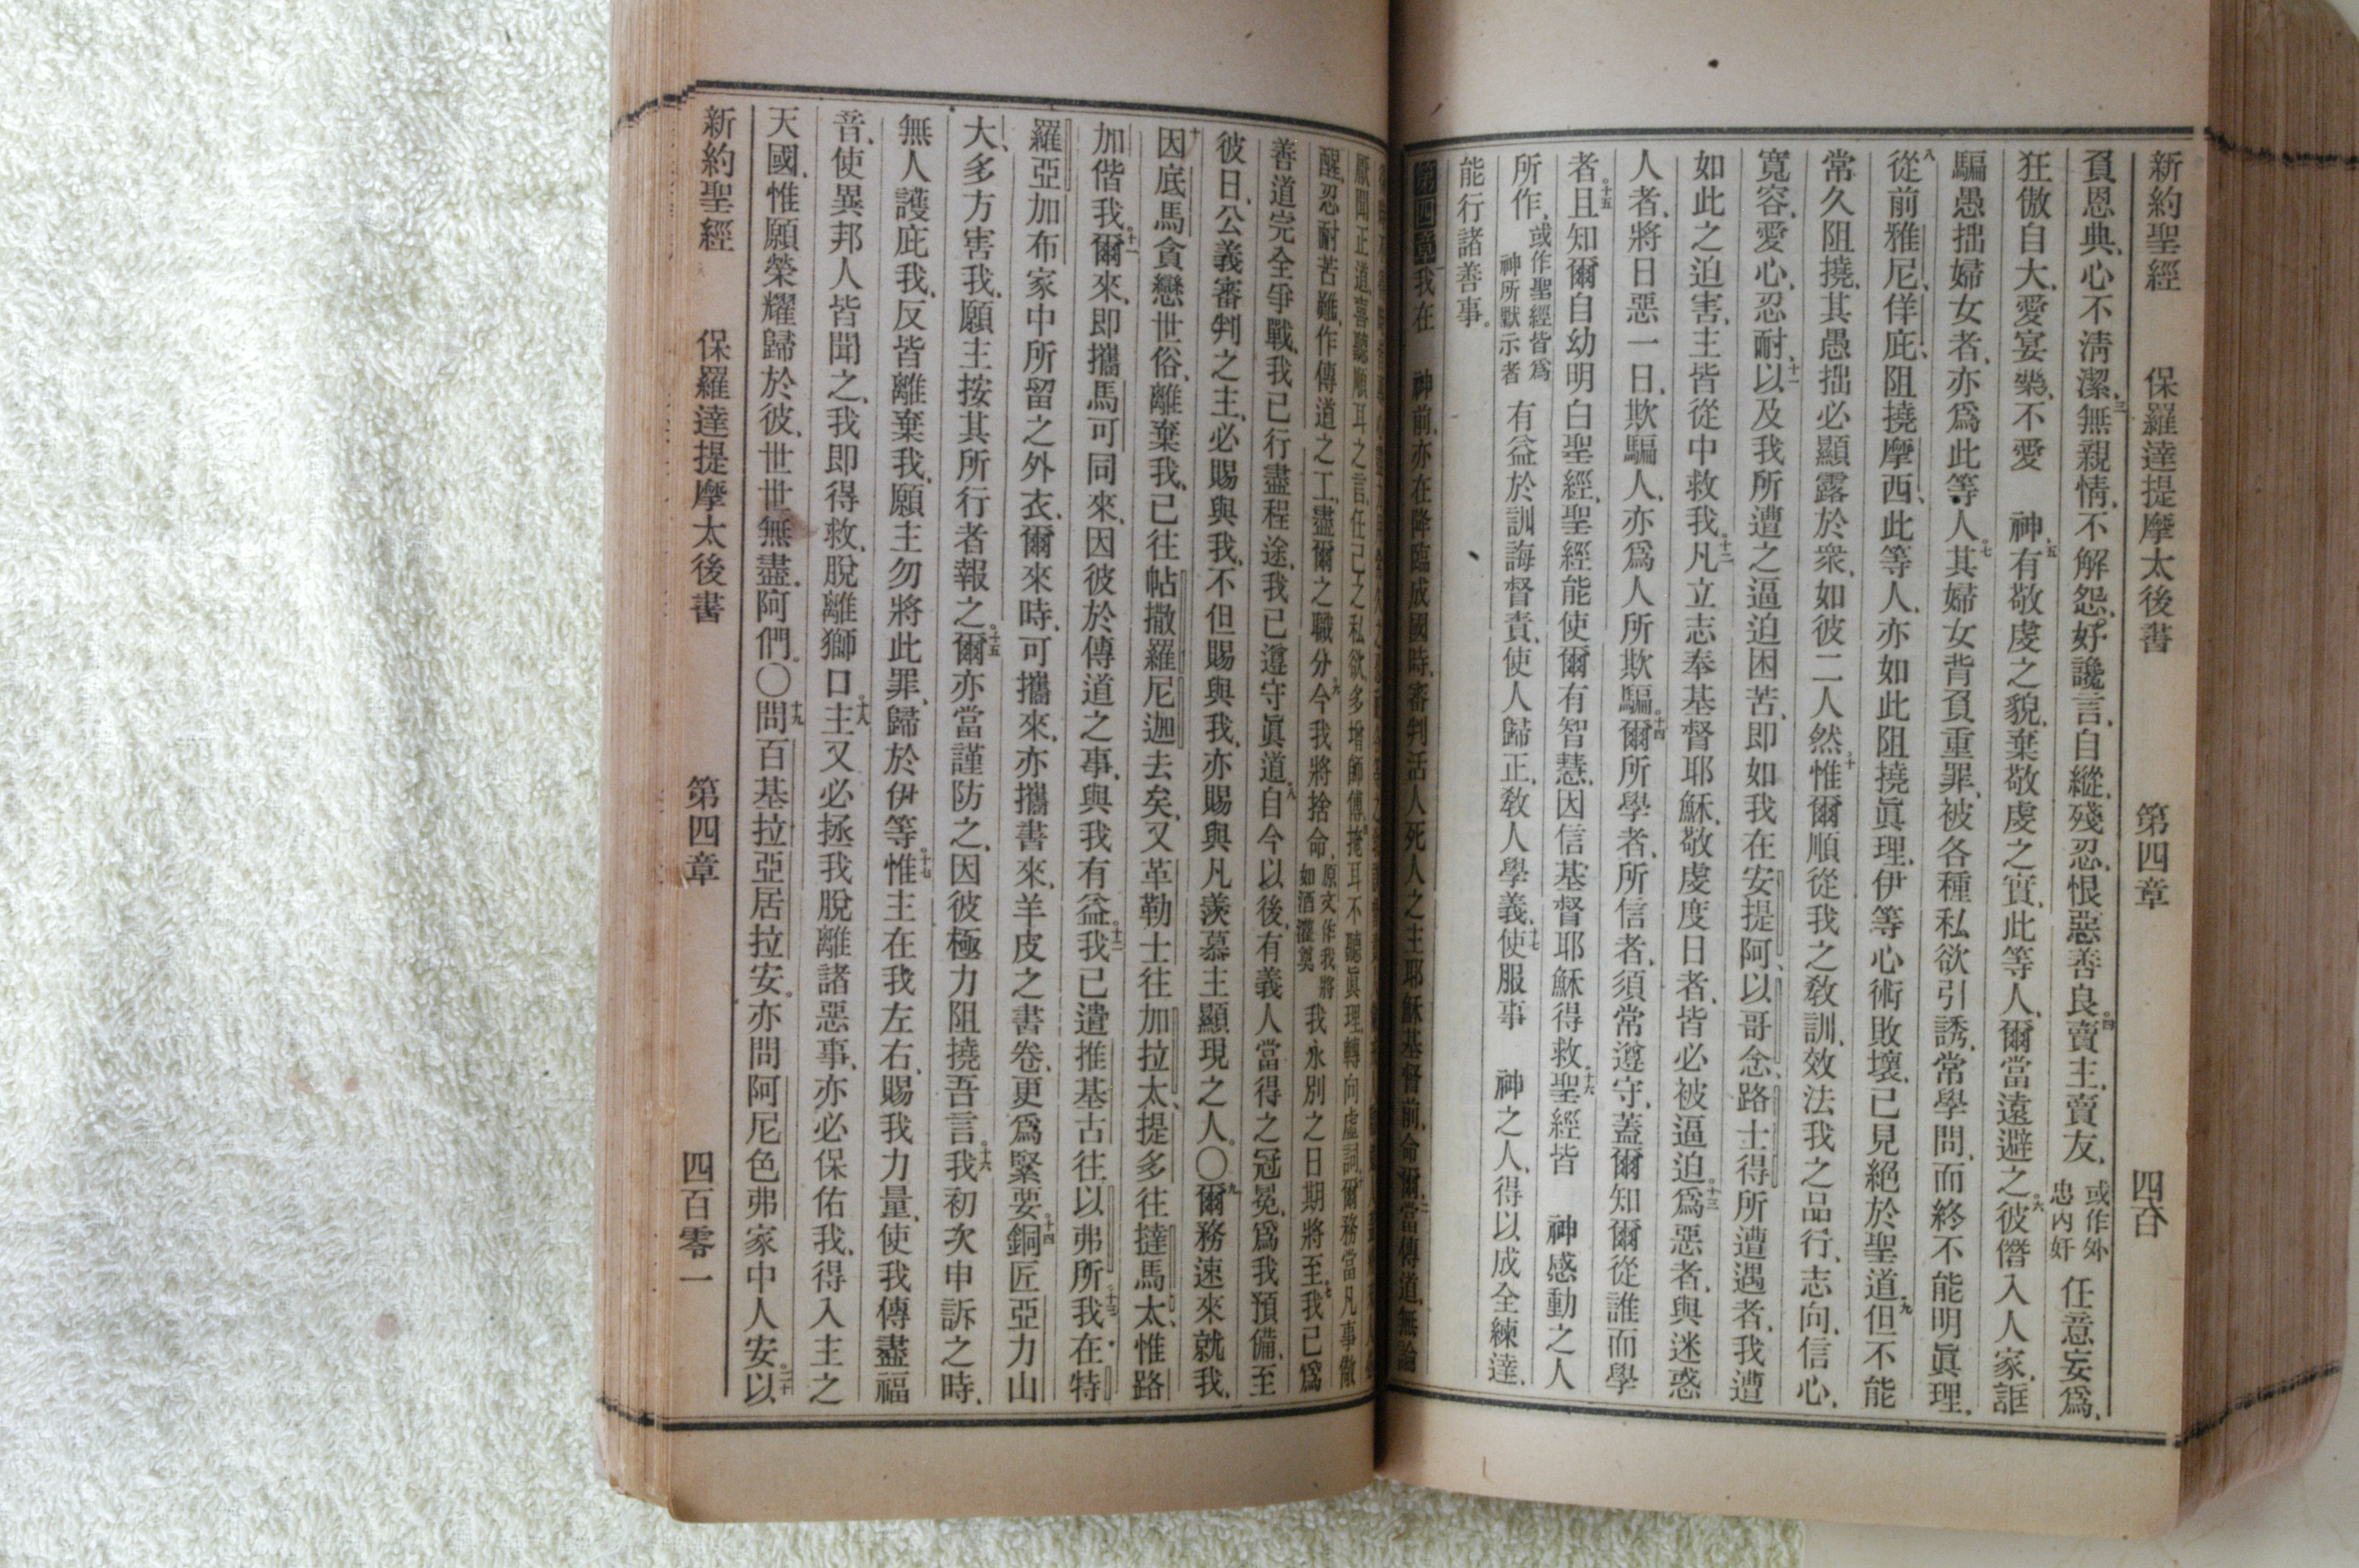 新約聖經 保羅達提摩太後書 第四章 四百
負恩典、心不淸潔、三無親情、不解怨、好讒言、自縱、殘忍、恨惡善良、四賣主、賣友、或作外忠內奸 任意妄爲、
狂傲自大、愛宴樂、不愛 神、五有敬虔之貌、棄敬虔之實、此等人、爾當遠避之、六彼僭入人家、誆
騙愚拙婦女者、亦爲此等人、七其婦女背負重罪、被各種私欲引誘、常學問、而終不能明眞理、
八從前雅尼、佯庇、阻撓摩西、此等人、亦如此阻撓眞理、伊等心術敗壞、已見絕於聖道、九但不能
常久阻撓、其愚拙必顯露於衆、如彼二人然、十惟爾順從我之敎訓、效法我之品行、志向、信心、
寬容、愛心、忍耐、十一以及我所遭之逼迫困苦、即如我在安提阿、以哥念、路士得所遭遇者、我遭
如此之迫害、主皆從中救我、十二凡立志奉基督耶穌、敬虔度日者、皆必被逼迫、十三爲惡者、與迷惑
人者、將日惡一日、欺騙人、亦爲人所欺騙、十四爾所學者、所信者、須常遵守、蓋爾知爾從誰而學
者、十五且知爾自幼明白聖經、聖經能使爾有智慧、因信基督耶穌得救、十六聖經皆 神感動之人
所作、或作聖經皆爲神所默示者 有益於訓誨督責、使人歸正、敎人學義、十七使服事 神之人、得以成全練達、
能行諸善事。
第四章 一我在 神前、亦在降臨成國時、審判活人死人之主耶穌基督前、命爾、二當傳道、無論
厭聞正道、喜聽順耳之言、任己之私欲、多增師傅、掩耳不聽眞理、轉向虛詞、爾務當凡事儆
醒、忍耐苦難、作傳道之工、盡爾之職分、六今我將捨命、原文作我將如酒灌奠 我永別之日期將至、七我已爲
善道完全爭戰、我已行盡程途、我已遵守眞道、八自今以後、有義人當得之冠冕、爲我預備、至
彼日、公義審判之主、必賜與我、不但賜與我、亦賜與凡羨慕主顯現之人。〇九爾務速來就我、
十因底馬貪戀世俗、離棄我、已往帖撒羅尼迦去矣、又革勒士往加拉太、提多往撻馬太、惟路
加偕我、十一爾來、即攜馬可同來、因彼於傳道之事、與我有益、十二我已遣推基古往以弗所、十三我在特
羅亞加布家中所留之外衣、爾來時、可攜來、亦攜書來、羊皮之書卷、更爲緊要、十四銅匠亞力山
大、多方害我、願主按其所行者報之、十五爾亦當謹防之、因彼極力阻撓吾言、十六我初次申訴之時、
無人護庇我、反皆離棄我、願主勿將此罪、歸於伊等、十七惟主在我左右、賜我力量、使我傳盡福
音、使異邦人皆聞之、我即得救、脫離獅口、十八主又必拯我脫離諸惡事、亦必保佑我、得入主之
天國、惟願榮耀歸於彼、世世無盡、阿們。〇十九問百基拉亞居拉安。亦問阿尼色弗家中人安、二十以
新約聖經 保羅達提摩太後書 第四章 四百零一